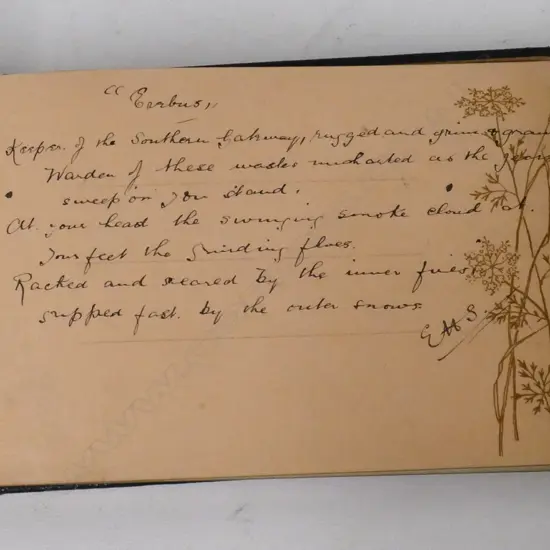 "Erebus"
Keeper of the Southern Gateway, rugged and grim & gran
Warden of these wastes uncharted as the years
sweep on you stand.
At your head the swinging smoke cloud at
your feet the grinding floes.
Racked and seared by the inner fires
gripped fast. by the outer snows
EHS